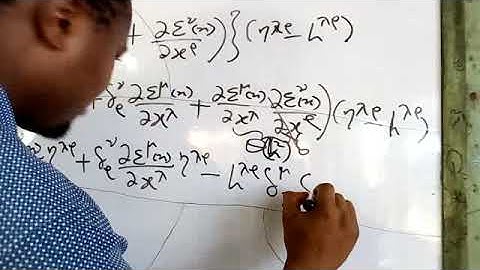 + ∂Σ^ν(x)/∂x^ρ)}(η^λρ - h^λρ)
δ^ν_ρ ∂Σ^μ(x)/∂x^λ + ∂Σ^μ(x)/∂x^λ ∂Σ^ν(x)/∂x^ρ)(η^λρ - h^λρ)
η^λρ + δ^ν_ρ ∂Σ^μ(x)/∂x^λ η^λρ - h^λρ δ^μ